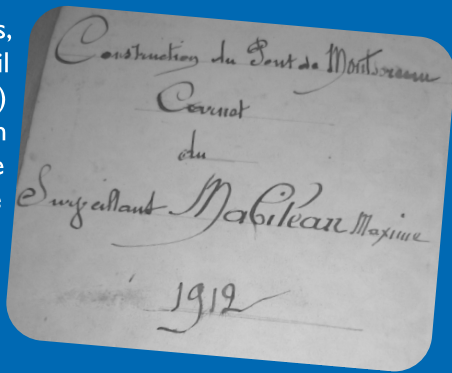 s,
il
)
n
e
Construction du Pont de Montsoreau
Carnet
du
Surveillant Mabileau Maxime
1912